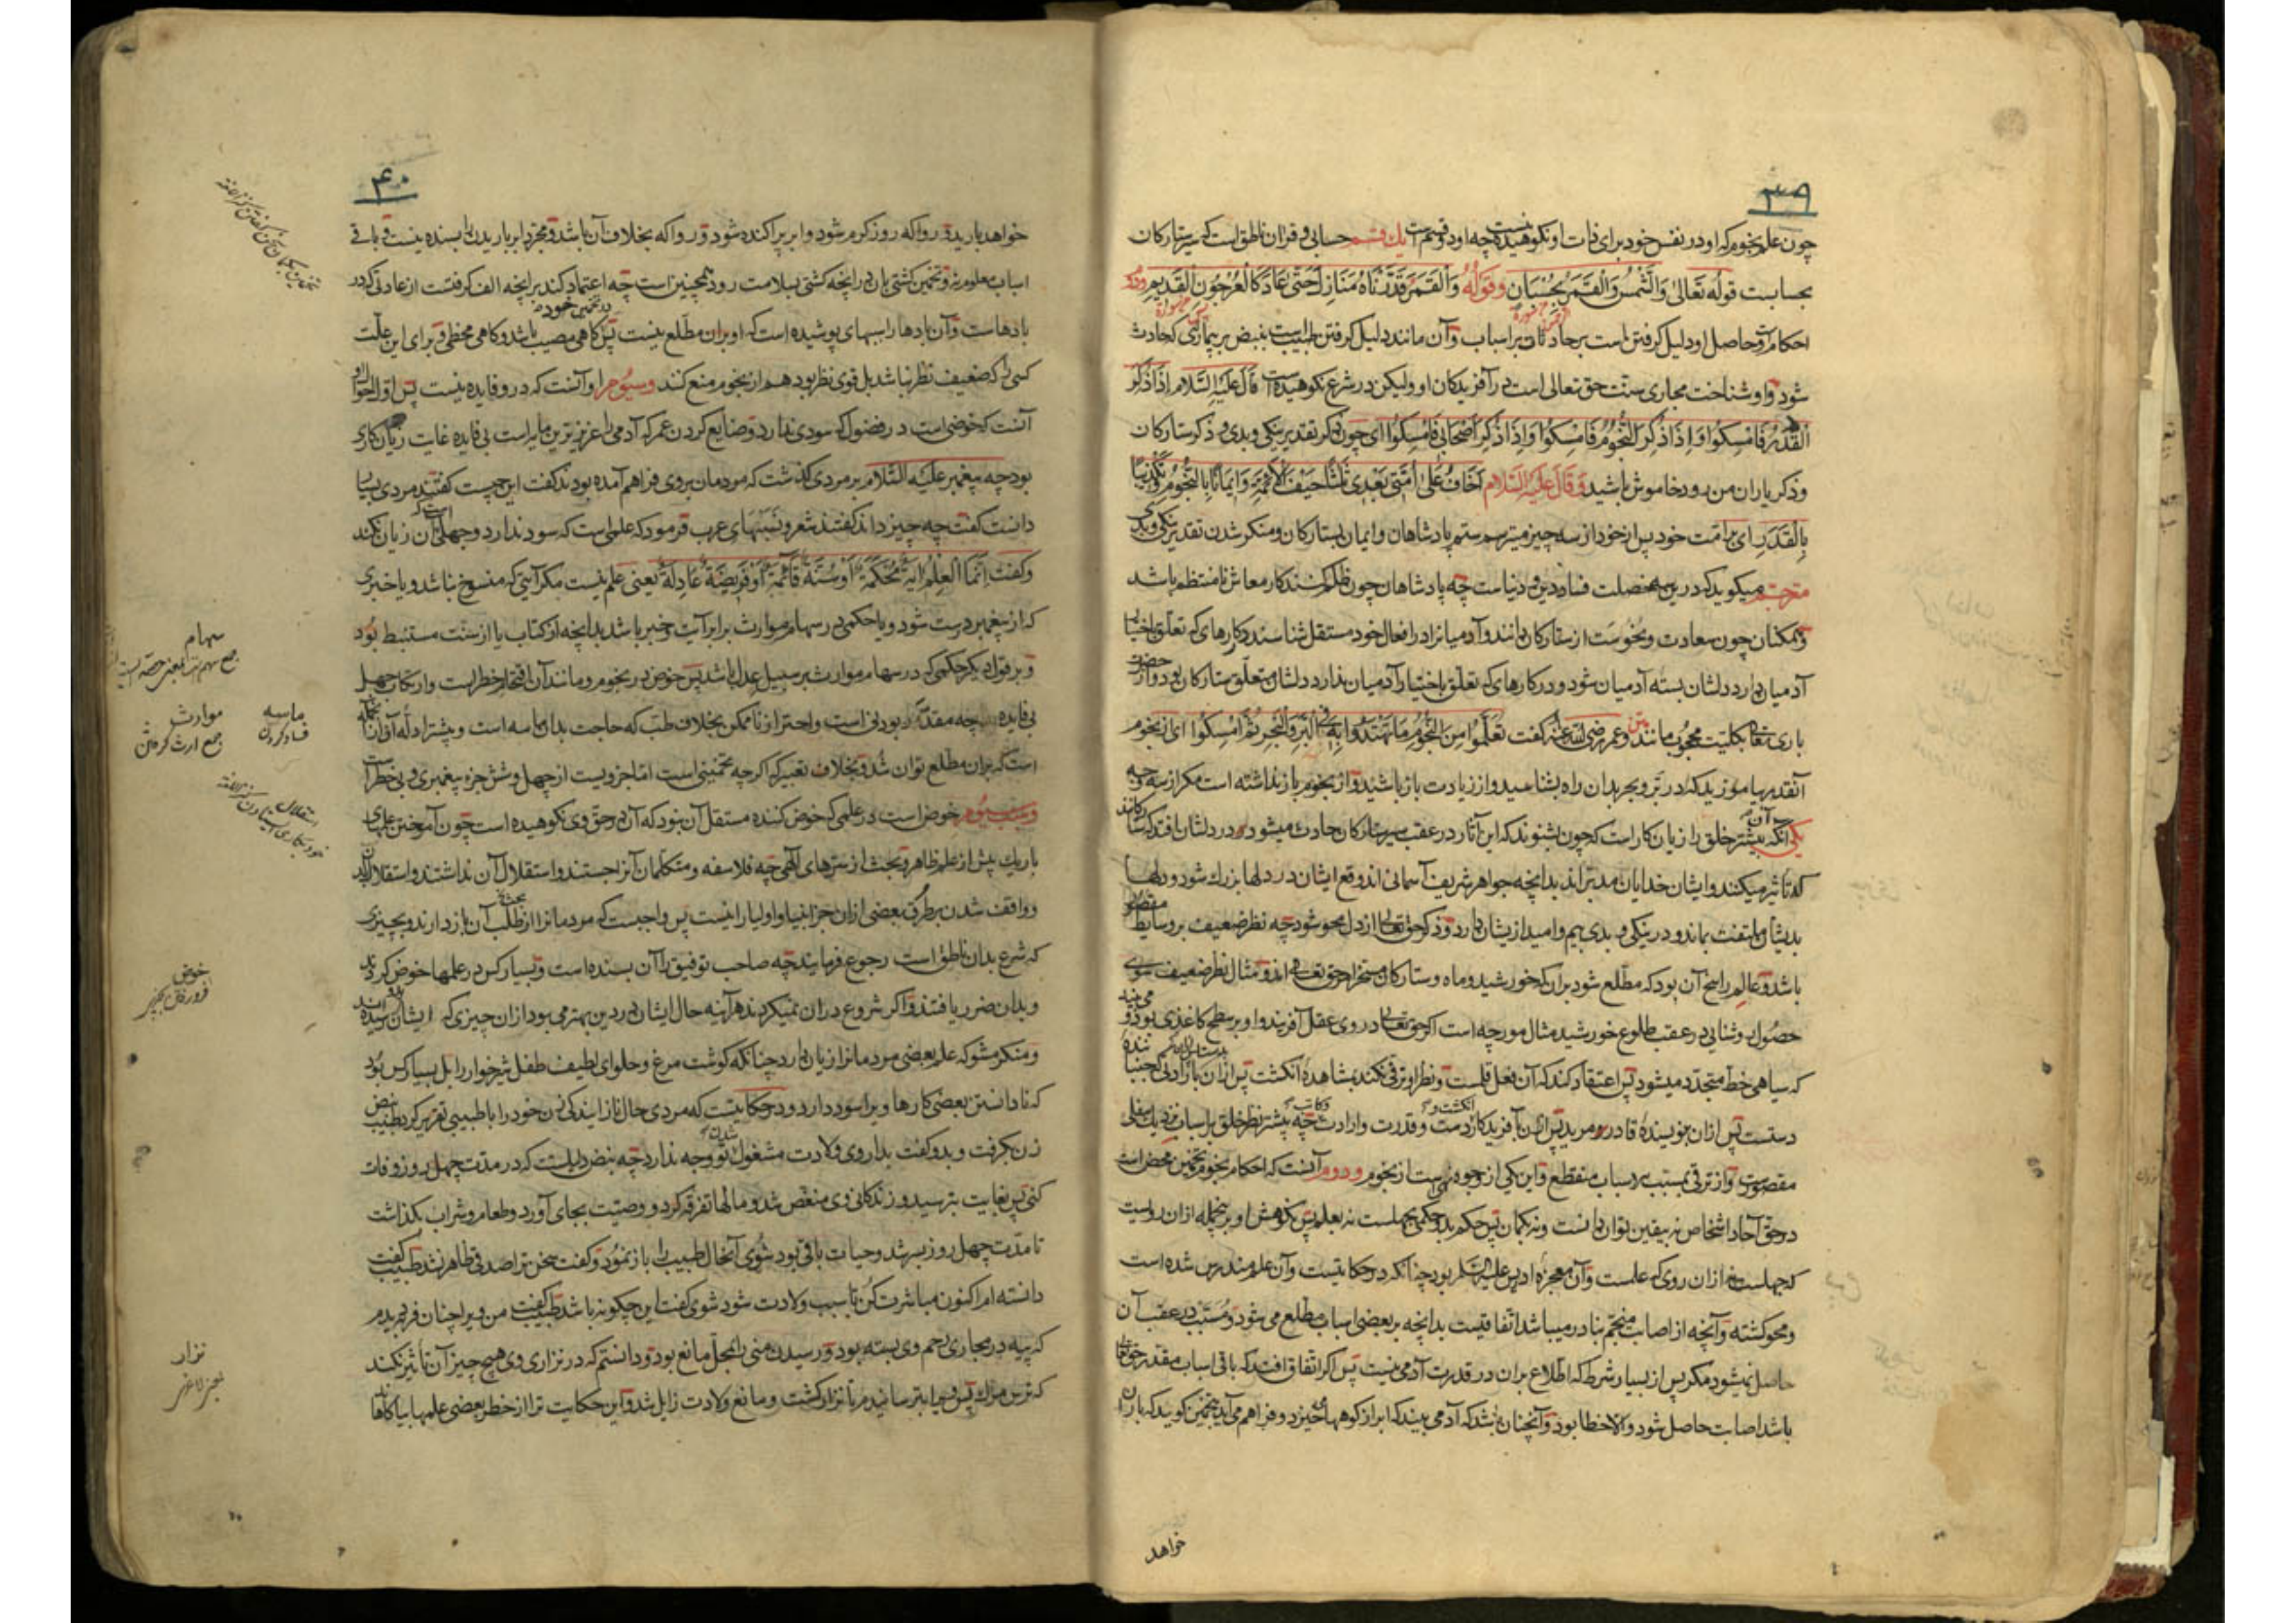 ۳۹
چون علم نجوم که او در نفس خود برای ذات او نکوهیده نیست چه او دو قسم است یک قسم حسابی و قرآن ناطق است که سیر ستارگان
بحسابست قوله تعالی وَالشَّمْسُ وَالْقَمَرُ بِحُسْبَانٍ وقوله وَالْقَمَرَ قَدَّرْنَاهُ مَنَازِلَ حَتَّى عَادَ كَالْعُرْجُونِ الْقَدِيمِ ودوم
احکام است و حاصل او دلیل گرفتن است بر حادثات بر اسباب و آن مانند دلیل گرفتن طبیب است بنبض بر بیماری که حادث
شود و او شناخت مجاری سنت حق تعالی است در آفریدگان او ولیکن در شرع نکوهیده است قال علیه السلام اِذَا ذُكِرَ
الْقَدَرُ فَامْسِكُوا وَاِذَا ذُكِرَ النُّجُومُ فَامْسِكُوا وَاِذَا ذُكِرَ اَصْحَابِي فَامْسِكُوا ای چون ذکر تقدیر نیکی و بدی و ذکر ستارگان
و ذکر یاران من رود خاموش باشید و قال علیه السلام اَخَافُ عَلَى اُمَّتِي بَعْدِي ثَلَاثًا حَيْفَ الْاَئِمَّةِ وَاِيمَانًا بِالنُّجُومِ وَتَكْذِيبًا
بِالْقَدَرِ ای بر امت خود پس از خود از سه چیز میترسم ستم پادشاهان و ایمان بستارگان و منکر شدن تقدیر نیکی و بدی
مترجم میگوید که درین سه خصلت فساد دین و دنیاست چه پادشاهان چون ظلم کنند کار معاش نامنتظم باشد
و همگنان چون سعادت و نحوست از ستارگان دانند و آدمیانرا در افعال خود مستقل شناسند در کارهای که تعلق باختیار
آدمیان دارد دلشان بسته آدمیان شود و در کارهای که تعلق باختیار آدمیان ندارد دلشان متعلق ستارگان بود و از حضرت
باری تعالی بکلیت محجوب مانند متن و عمر رضی الله عنه گفت تَعَلَّمُوا مِنَ النُّجُومِ مَا تَهْتَدُوا بِهِ فِي الْبَرِّ وَالْبَحْرِ ثُمَّ امْسِكُوا ای از نجوم
آنقدر بیاموزید که در بر و بحر بدان راه بشناسید و از زیادت باز باشید و از نجوم باز نداشته است مگر از سه وجه
یکی آنکه بیشتر خلق را زیان کار است که چون بشنوند که این آثار در عقب سیر ستارگان حادث میشود در دلشان افتد که ستارگانند
که تأثیر میکنند و ایشان خدایان مدبراند بدانچه جواهر شریف آسمانی اند و وقع ایشان در دلها بزرگ شود و دلها
بدیشان ملتفت بماند و در نیکی و بدی بیم و امید از یشان دارد و ذکر حق تعالی از دل محو شود چه نظر ضعیف بر وسایط مقصور
باشد و عالم راسخ آن بود که مطلع شود بران که خورشید و ماه و ستارگان مسخر امر حق تعالی اند و مثال نظر ضعیف سوی
حصول روشنایی در عقب طلوع خورشید مثال مورچه است اگر حق تعالی در وی عقل آفریند و او بر سطح کاغذی بود و می بیند
که سیاهی خط متجدد میشود پس اعتقاد کند که آن فعل قلمست و نظر او ترقی نکند بمشاهده انگشت پس ازان
دستست پس ازان بنویسنده قادر و مرید پس ازان بآفریدگار دست و قدرت و ارادت چه بیشتر نظر خلق بر اسباب نزدیک سفلی
مقصورست و از ترقی بمسبب اسباب منقطع و این یکی از وجوه نهی است از نجوم و دوم آنست که احکام نجوم تخمین محض است
در حق آحاد اشخاص نه بیقین توان دانست و نه بگمان پس حکم بدو حکمی بجهلست نه بعلم پس نکوهش او بر نجمله ازان رویست
که جهلست نه ازان روی که علمست و آن معجزه ادریس علیه السلم بود چنانکه در حکایتست و آن علم مندرس شده است
و محو گشته و آنچه از اصابت منجم بنادر میباشد اتفاقیست بدانچه بر بعضی اسباب مطلع می شود و مسبب در عقب آن
حاصل نمیشود مگر پس از بسیار شرط که اطلاع بران در قدرت آدمی نیست پس اگر اتفاق افتد که باقی اسباب مقدر حق تعالی
باشد اصابت حاصل شود و الا خطا بود و آنچنان باشد که آدمی بیند که ابر از کوهها می خیزد و فراهم می آید بتخمین گوید که باران
خواهد
۴۰
خواهد بارید و روا که روز گرم شود و ابر پراکنده شود و روا که بخلاف آن باشد و مجرد ابر باریدن را بسنده نیست و باقی
اسباب معلوم نه و تخمین کشتی بان در انچه کشتی بسلامت رود همچنین است چه اعتماد کند بر انچه الف گرفتست از عادتی که در
بادهاست و آن بادها را سببهای پوشیده است که او بران مطلع نیست پس گاهی در تخمین خود مصیب باشد و گاهی مخطی و برای این علت
کسی را که ضعیف نظر نباشد بل قوی نظر بود هم از نجوم منع کنند و سیوم او آنست که درو فایده نیست پس اقل احوال او
آنست که خوضی است در فضول که سودی ندارد و ضایع کردن عمر که آدمی را عزیزترین مایه است بی فایده غایت زیان کاری
بود چه پیغمبر علیه السلام بر مردی گذشت که مردمان بر وی فراهم آمده بودند گفت این چیست گفتند مردی بسیار
دانست گفت چه چیز داند گفتند شعر و نسبتهای عرب فرمود که علمی است که سود ندارد و جهلی است که آن زیان نکند
و گفت اِنَّمَا الْعِلْمُ اٰيَةٌ مُحْكَمَةٌ اَوْ سُنَّةٌ قَائِمَةٌ اَوْ فَرِيضَةٌ عَادِلَةٌ یعنی علم نیست مگر آیتی که منسوخ نباشد و یا خبری
که از پیغمبر درست شود و یا حکمی در سهام مواریث برابر آیت و خبر باشد بدانچه از کتاب یا از سنت مستنبط بود
و بر قول دیگر حکمی که در سهام مواریث بر سبیل عدل باشد پس خوض در نجوم و مانند آن اقتحام خطر است و ارتکاب جهل
بی فایده چه مقدر بودنی است و احتراز ناممکن بخلاف طب که حاجت بدان ماسه است و بیشتر ادله آن ازان جمله
است که بران مطلع توان شد و بخلاف تعبیر که اگرچه تخمینی است اما جزویست از چهل و شش جزو پیغمبری و بی خطر است
و سبب سیوم خوض است در علمی که خوض کننده مستقل آن نبود که آن در حق وی نکوهیده است چون آموختن علمهای
باریک پیش از علم ظاهر و بحث از سرهای الهی چه فلاسفه و متکلمان آنرا جستند و استقلال آن نداشتند و استقلال بدان
و واقف شدن بر طرق بعضی ازان جز انبیا و اولیا را نیست پس واجبست که مردمانرا از طلب بحث آن باز دارند و بچیزی
که شرع بدان ناطق است رجوع فرمایند چه صاحب توفیق را آن بسنده است و بسیار کس در علمها خوض کردند
و بدان ضرر یافتند و اگر شروع دران نمیکردند هرآینه حال ایشان در دین بهتر می بود ازان چیزی که ایشان بدو رسیده اند
و منکر مشو که علم بعضی مردمانرا زیان دارد چنانکه گوشت مرغ و حلوای لطیف طفل شیرخوار را بل بسیار کس بود
که نادانستن بعضی کارها ویرا سود دارد و در حکایتست که مردی حال نازایندگی زن خود را با طبیبی تقریر کرد طبیب نبض
زن بگرفت و بدو گفت بداروی ولادت مشغول شدن تو وجه ندارد چه نبض دلیلست که در مدت چهل روز وفات
کنی پس بغایت بترسید و زندگانی وی منغص شد و مالها تفرقه کرد و وصیت بجای آورد و طعام و شراب بگذاشت
تا مدت چهل روز بسر شد و حیات باقی بود شوی آنحال طبیب را باز نمود و گفت سخن ترا صدقی ظاهر نشد طبیب گفت
دانسته ام اکنون مباشرت کن تا سبب ولادت شود شوی گفت این چگونه باشد طبیب گفت من ویرا چنان فربه دیدم
که پیه در مجاری رحم وی بسته بود و رسیدن منی را بمحل مانع بود و دانستم که در نزاری وی هیچ چیز آن تأثیر نکند
که ترس مرگ پس ویرا بترسانیدم تا نزار گشت و مانع ولادت زایل شد و این حکایت ترا از خطر بعضی علمها بیاگاهاند
سهام
جمع سهم است بمعنی حصه
مواریث
جمع ارث
ماسه
استقلال
خوض
نزار
بمعنی لاغر